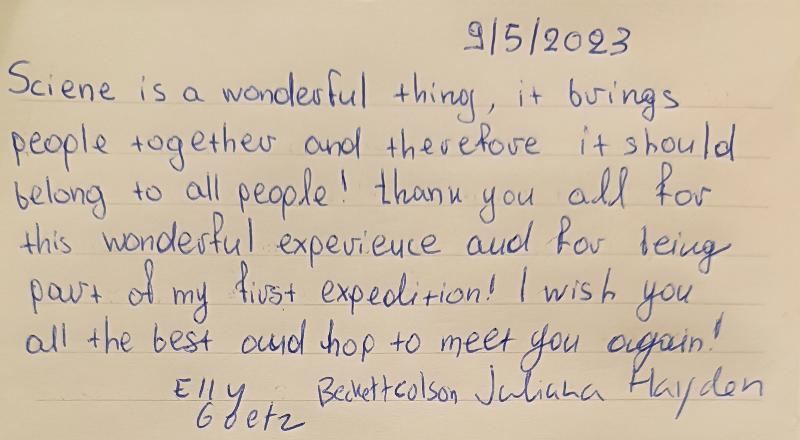 9/5/2023
Sciene is a wonderful thing, it brings
people together and therefore it should
belong to all people! thank you all for
this wonderful experience and for being
part of my first expedition! I wish you
all the best and hop to meet you again!
Elly Beckett colson Juliana Hayden
Goetz